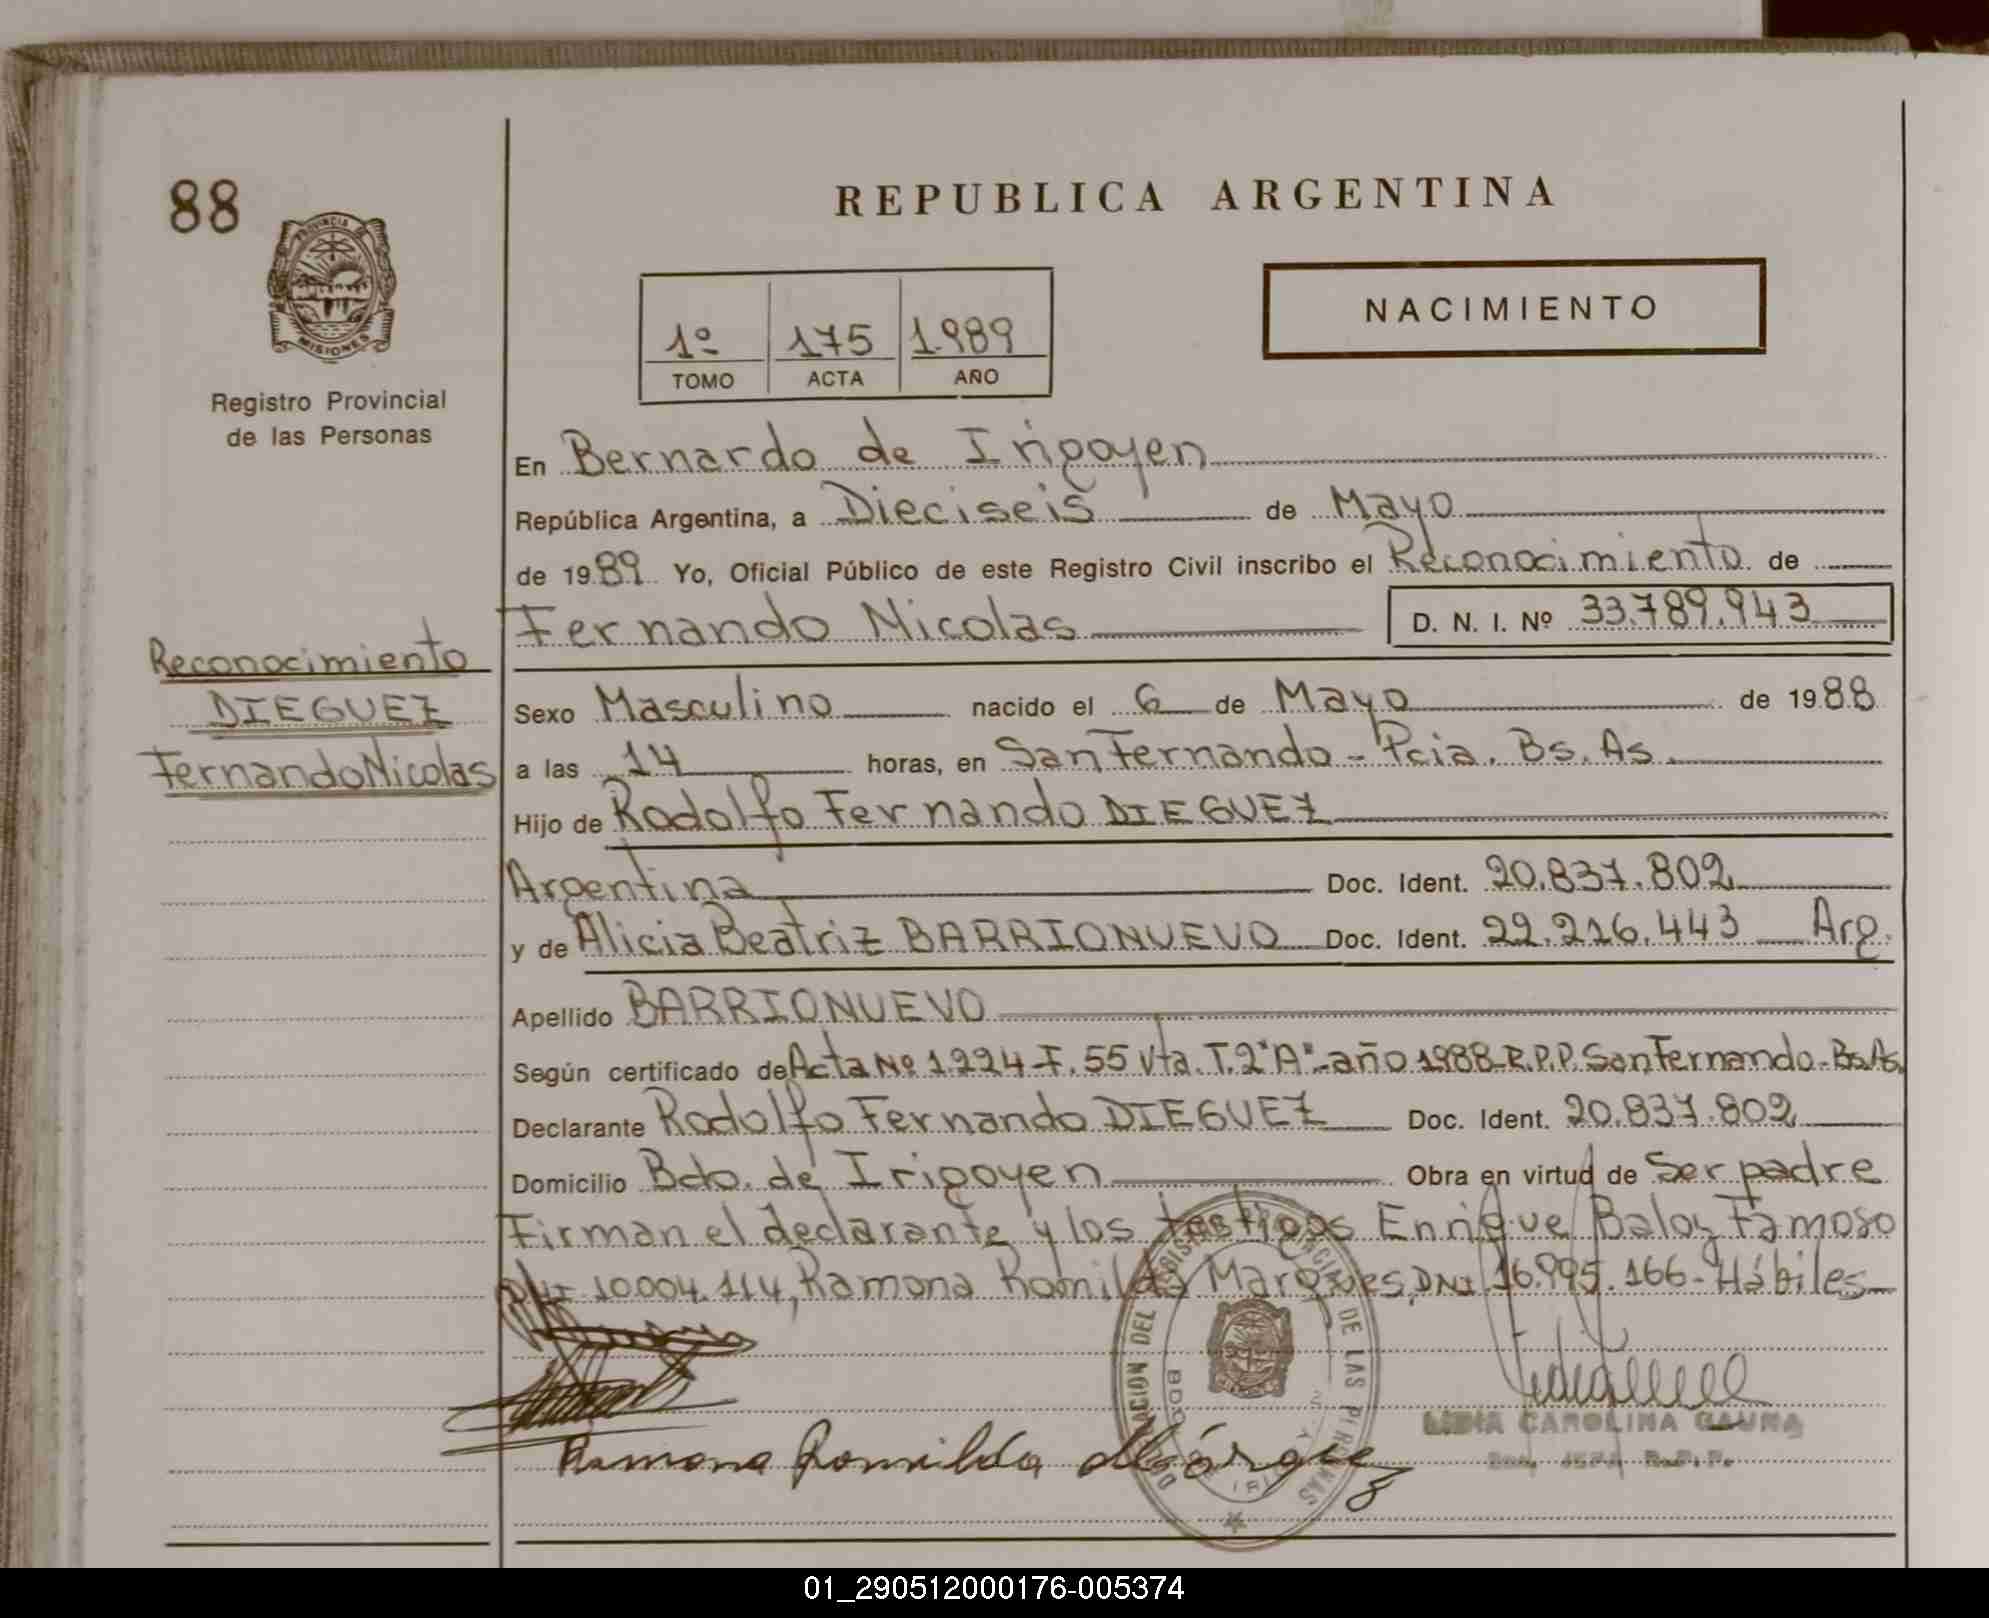 88
REPUBLICA ARGENTINA
PROVINCIA DE
MISIONES
Registro Provincial
de las Personas
NACIMIENTO
1º 175 1989
TOMO ACTA AÑO
En Bernardo de Irigoyen
República Argentina, a Dieciseis de Mayo
de 1989 Yo, Oficial Público de este Registro Civil inscribo el Reconocimiento de
Fernando Nicolas D. N. I. Nº 33.789.943
Reconocimiento
DIEGUEZ
Fernando Nicolas
Sexo Masculino nacido el 6 de Mayo de 1988
a las 14 horas, en San Fernando - Pcia. Bs. As.
Hijo de Rodolfo Fernando DIEGUEZ
Argentina Doc. Ident. 20.837.802
y de Alicia Beatriz BARRIONUEVO Doc. Ident. 22.216.443 Arg.
Apellido BARRIONUEVO
Según certificado de Acta Nº 1224-F. 55 Vta. T. 2"A"-año 1988-R.P.P. San Fernando-Bs.As.
Declarante Rodolfo Fernando DIEGUEZ Doc. Ident. 20.837.802
Domicilio Bdo. de Irigoyen Obra en virtud de Ser padre
Firman el declarante y los testigos Enrique Baloz Famoso
DNI 10.004.114, Ramona Romilda Marques, DNI 16.995.166- Hábiles
Ramona Romilda Márquez
LIDIA CAROLINA GAUNA
JEFA R.P.P.
01_290512000176-005374